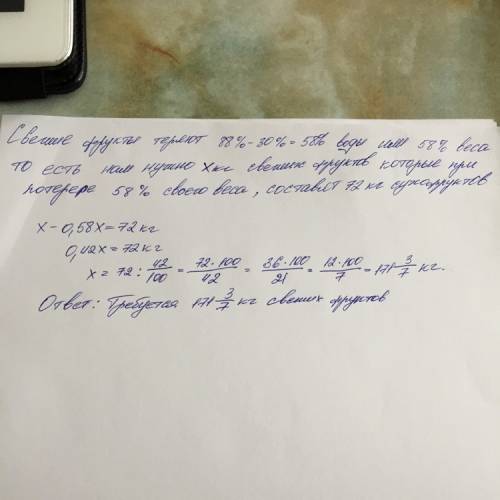 Свежие фрукты теряют 88%-30%=58% воды или 58% веса
то есть нам нужно x кг свежих фруктов которые при
потере 58% своего веса, составят 72 кг сухофруктов
x - 0,58x = 72 кг
0,42x = 72 кг
x = 72 : 42/100 = 72·100/42 = 36·100/21 = 12·100/7 = 171 3/7 кг.
Ответ: Требуется 171 3/7 кг свежих фруктов